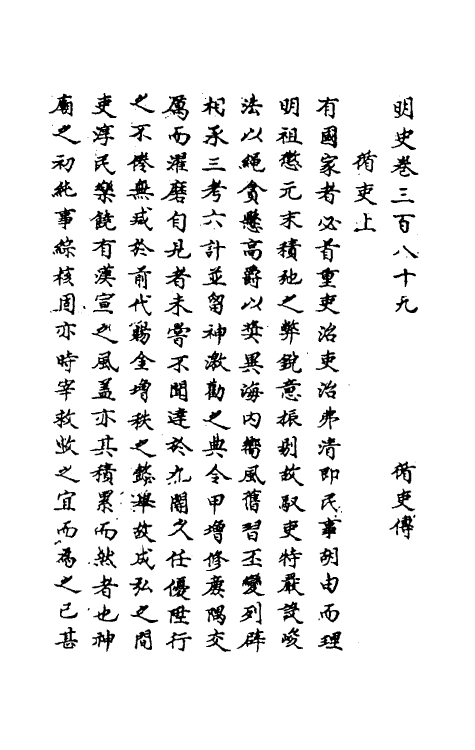 明史卷三百八十九 循吏傳
循吏上
有國家者必首重吏治吏治弗清即民事胡由而理
明祖懲元末積弛之弊銳意振剔故馭吏特嚴設峻
法以繩貪懸高爵以奬異海内嚮風舊習丕變列辟
相承三考六計並留神激勸之典令甲增修廉隅交
厲而濯磨自見者未嘗不聞達於九閽久任優陞行
之不倦無减於前代賜金增秩之懿舉故成弘之間
吏淳民樂饒有漢宣之風蓋亦其積累而然者也神
廟之初純事綜核固亦時宰救敝之宜而為之已甚